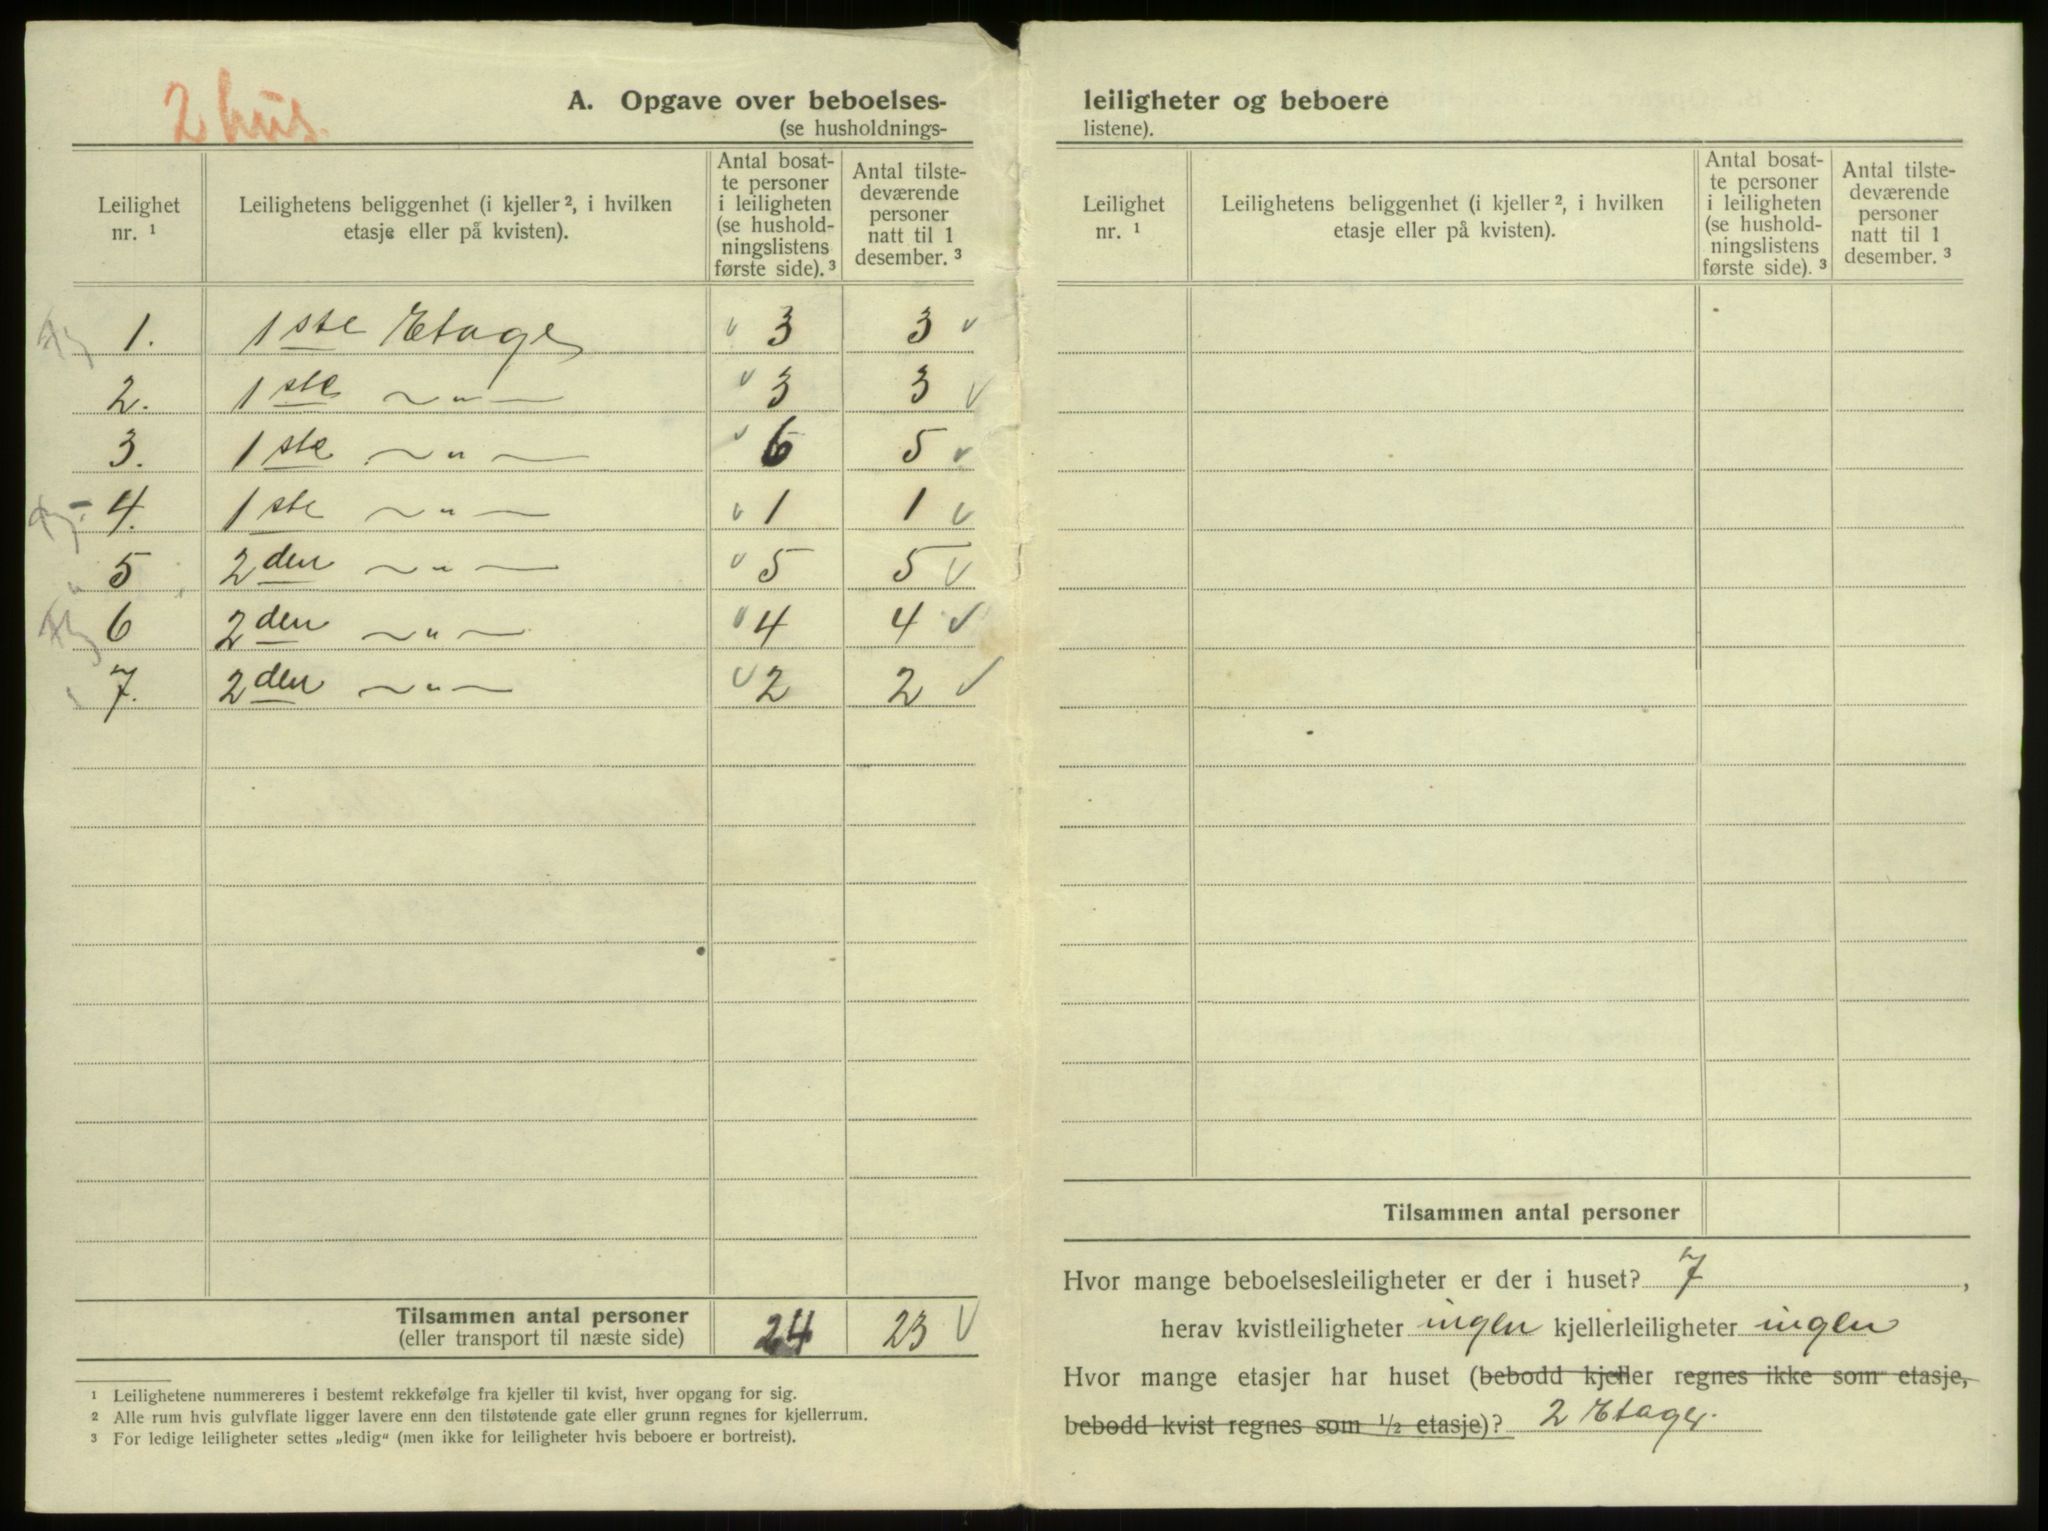 2 hus.
A. Opgave over beboelses-
(se husholdnings-
Leilighet nr. ¹
Leilighetens beliggenhet (i kjeller ², i hvilken etasje eller på kvisten).
Antal bosatte personer i leiligheten (se husholdningslistens første side). ³
Antal tilstedeværende personer natt til 1 desember. ³
1. 1ste Etage 3 3
2. 1ste ~ " — 3 3
3. 1ste ~ " — 6 5
4. 1ste ~ " — 1 1
5 2den ~ " — 5 5
6 2den ~ " — 4 4
7. 2den ~ " — 2 2
Tilsammen antal personer 24 23
(eller transport til næste side)
¹ Leilighetene nummereres i bestemt rekkefølge fra kjeller til kvist, hver opgang for sig.
² Alle rum hvis gulvflate ligger lavere enn den tilstøtende gate eller grunn regnes for kjellerrum.
³ For ledige leiligheter settes „ledig“ (men ikke for leiligheter hvis beboere er bortreist).
leiligheter og beboere
listene).
Leilighet nr. ¹
Leilighetens beliggenhet (i kjeller ², i hvilken etasje eller på kvisten).
Antal bosatte personer i leiligheten (se husholdningslistens første side). ³
Antal tilstedeværende personer natt til 1 desember. ³
Tilsammen antal personer
Hvor mange beboelsesleiligheter er der i huset? 7 ,
herav kvistleiligheter ingen kjellerleiligheter ingen
Hvor mange etasjer har huset (bebodd kjeller regnes ikke som etasje,
bebodd kvist regnes som ½ etasje)? 2 Etager.